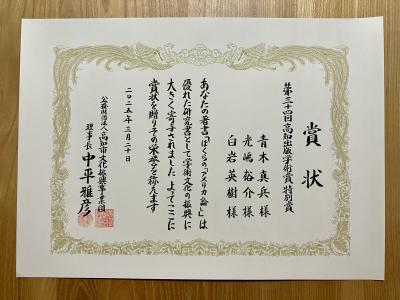 賞状
第三十四回高知出版学術賞 特別賞
青木真兵様
光嶋裕介様
白岩英樹様
あなたの著書「ぼくらの『アメリカ論』」は
優れた研究書として学術文化の振興に
大きく寄与されました よってここに
賞状を贈りその栄誉を称えます
二〇二五年三月二十日
公益財団法人高知市文化振興事業団
理事長 中平雅彦